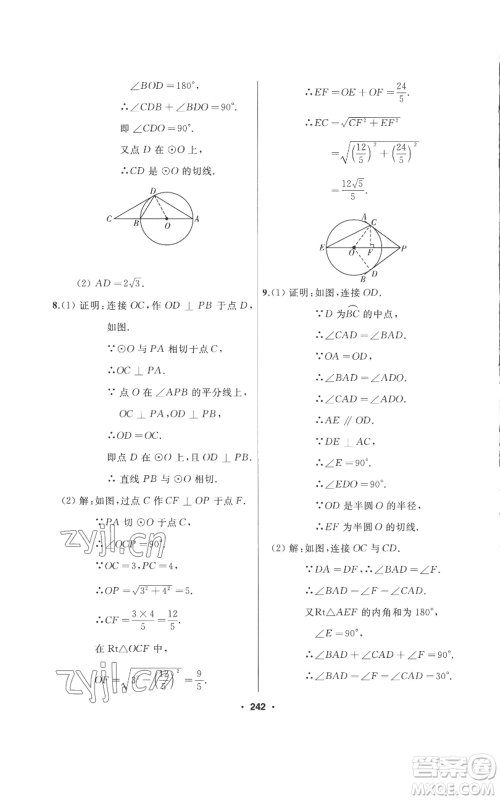 ∠BOD=180°,
∴∠CDB+∠BDO=90°.
即∠CDO=90°.
又点 D 在⊙O 上,
∴CD 是⊙O 的切线.
D
C
B
O
A
(2) AD=2√3.
8.(1) 证明:连接 OC,作 OD⊥PB 于点 D,
如图.
∵⊙O 与 PA 相切于点 C,
∴OC⊥PA.
∵点 O 在∠APB 的平分线上,
OC⊥PA,OD⊥PB,
∴OD=OC.
∴点 D 在⊙O 上,且 OD⊥PB.
∴直线 PB 与⊙O 相切.
(2) 解:如图,过点 C 作 CF⊥OP 于点 F.
∵PA 切⊙O 于点 C,
∴∠OCP=90°.
∵OC=3,PC=4,
∴OP=√(3²+4²)=5.
∴CF=(3×4)/5=12/5.
在 Rt△OCF 中,
OF=√(3²-(12/5)²)=9/5.
∴EF=OE+OF=24/5.
∴EC=√(CF²+EF²)
=√((12/5)²+(24/5)²)
=12√5/5.
A
C
E
O
F
P
D
B
9.(1) 证明:如图,连接 OD.
∵D 为BC的中点,
∴∠CAD=∠BAD.
∵OA=OD,
∴∠BAD=∠ADO.
∴∠CAD=∠ADO.
∴AE∥OD.
∵DE⊥AC,
∴∠E=90°.
∴∠EDO=90°.
∵OD 是半圆 O 的半径,
∴EF 为半圆 O 的切线.
(2) 解:如图,连接 OC 与 CD.
∵DA=DF,∴∠BAD=∠F.
∴∠BAD=∠F=∠CAD.
又Rt△AEF 的内角和为 180°,
∠E=90°.
∴∠BAD+∠CAD+∠F=90°.
∴∠BAD=∠CAD=∠F=30°.
zyjl.cn
zyjl.cn
· 242 ·
答案圈
MXQE.COM